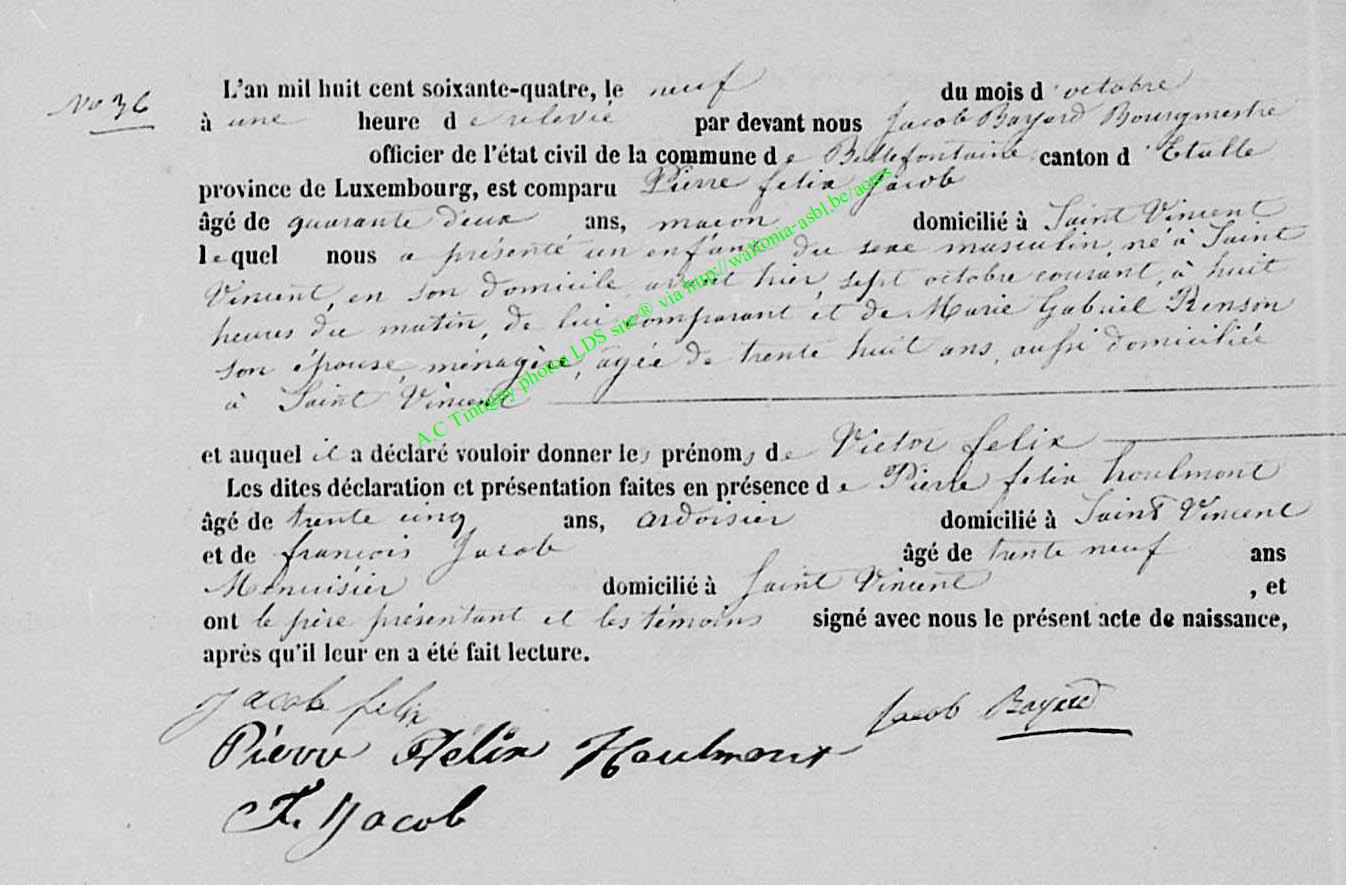 No 36
L'an mil huit cent soixante-quatre, le neuf du mois d'octobre
à une heure de relevié par devant nous Jacob Bayard Bourgmestre
officier de l'état civil de la commune de Bellefontaine canton d'Etalle
province de Luxembourg, est comparu Pierre felix Jacob
âgé de quarante deux ans, macon domicilié à Saint Vincent
lequel nous a présenté un enfant du sexe masculin né à Saint
Vincent, en son domicile, avant hier, sept octobre courant, à huit
heures du matin, de lui comparant et de Marie Gabriel Renson
son épouse, ménagère, âgée de trente huit ans aussi domiciliée
à Saint Vincent
et auquel il a déclaré vouloir donner les prénoms de Victor felix
Les dites déclaration et présentation faites en présence de Pierre felix houlmont
âgé de trente cinq ans, ardoisier domicilié à Saint Vincent
et de françois Jacob âgé de trente neuf ans
Menuisier domicilié à Saint Vincent , et
ont le père présentant et les témoins signé avec nous le présent acte de naissance,
après qu'il leur en a été fait lecture.
Jacob felix
Jacob Bayard
Pierre Félix Houlmont
F. Jacob
A.C Tintigny photos LDS sue® via http://waltonia-asbl.be/actes